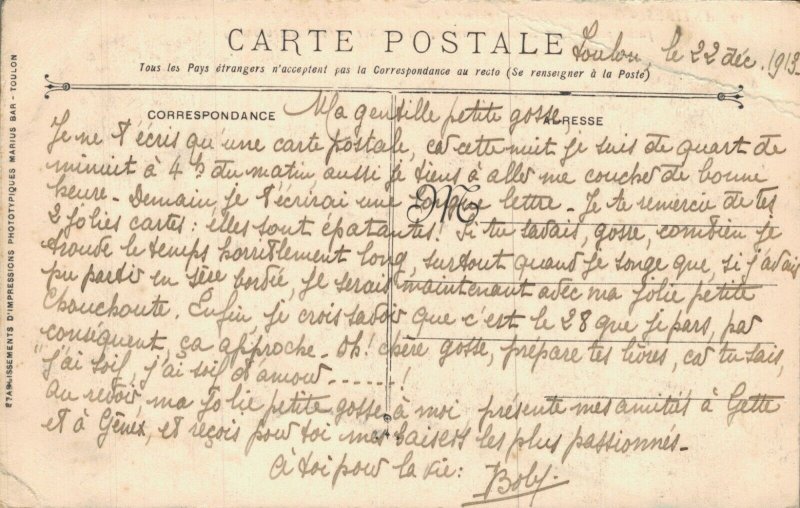 CARTE POSTALE
Toulon, le 22 déc. 1913
Tous les Pays étrangers n'acceptent pas la Correspondance au recto (Se renseigner à la Poste)
CORRESPONDANCE
ADRESSE
M
Ma gentille petite gosse,
Je ne t'écris qu'une carte postale, car cette nuit je suis de quart de
minuit à 4h du matin aussi je tiens à aller me coucher de bonne
heure - Demain, je t'écrirai une longue lettre - Je te remercie de tes
2 jolies cartes : elles sont épatantes! Si tu savais, gosse, combien je
trouve le temps horriblement long, surtout quand je songe que, si j'avais
pu partir en 1ère bordée, je serais maintenant avec ma jolie petite
Chouchoute. Enfin, je crois savoir que c'est le 28 que je pars, par
conséquent, ça approche - Oh! chère gosse, prépare tes lèvres, car tu sais,
"j'ai soif, j'ai soif d'amour ------!
Au revoir ma jolie petite gosse à moi présente mes amitiés à Gette
et à Génex, et reçois pour toi mes baisers les plus passionnés -
A toi pour la vie :
Boby.
ETABLISSEMENTS D'IMPRESSIONS PHOTOTYPIQUES MARIUS BAR - TOULON